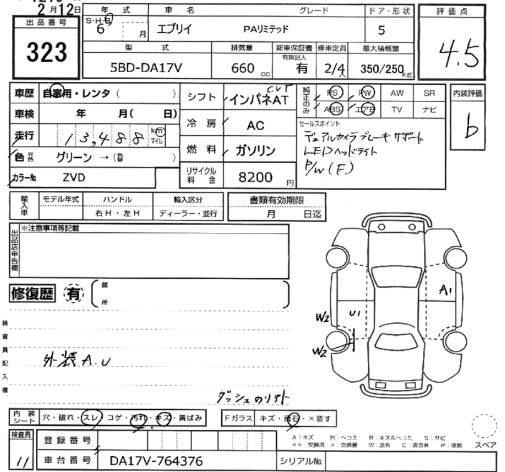 2月12日
出品番号
323
年式 車名 グレード ドア・形状
S・H・R
6 月 エブリイ PAリミテッド 5
型式 排気量 新車保証書 乗車定員 最大積載量
5BD-DA17V 660 cc 有 2/4人 350/250 kg
評価点
4.5
車歴 自家用・レンタ ( )
車検 年 月( 日)
走行 13,488 km マイル
色 グリーン → (色替)
カラーNo ZVD
シフト インパネAT CVT
冷房 AC
燃料 ガソリン
リサイクル料金 8200円
純正のみ PS PW AW SR
ABS エアB TV ナビ
セールスポイント
デュアルカメラブレーキサポート
LEDヘッドライト
P/W(F)
内装評価
b
輸入車 モデル年式 ハンドル 輸入区分
右H・左H ディーラー・並行
書類有効期限
月 日迄
出品店申告欄
※注意事項等記載
修復歴 有 部所
検査員記入欄
外装A.U
ダッシュのリフト
W2
W2
U1
A1
内装シート 穴・破れ・スレ コゲ・汚れ・キズ・黄ばみ
Fガラス キズ・飛石・×要す
検査員
11
登録番号
車台番号 DA17V-764376 シリアルNo.
A:キズ P:ヘコミ B:キズ&ヘコミ S:サビ
××:交換済 X:要交換 W:波有 C:腐食有 P:塗装
スペア